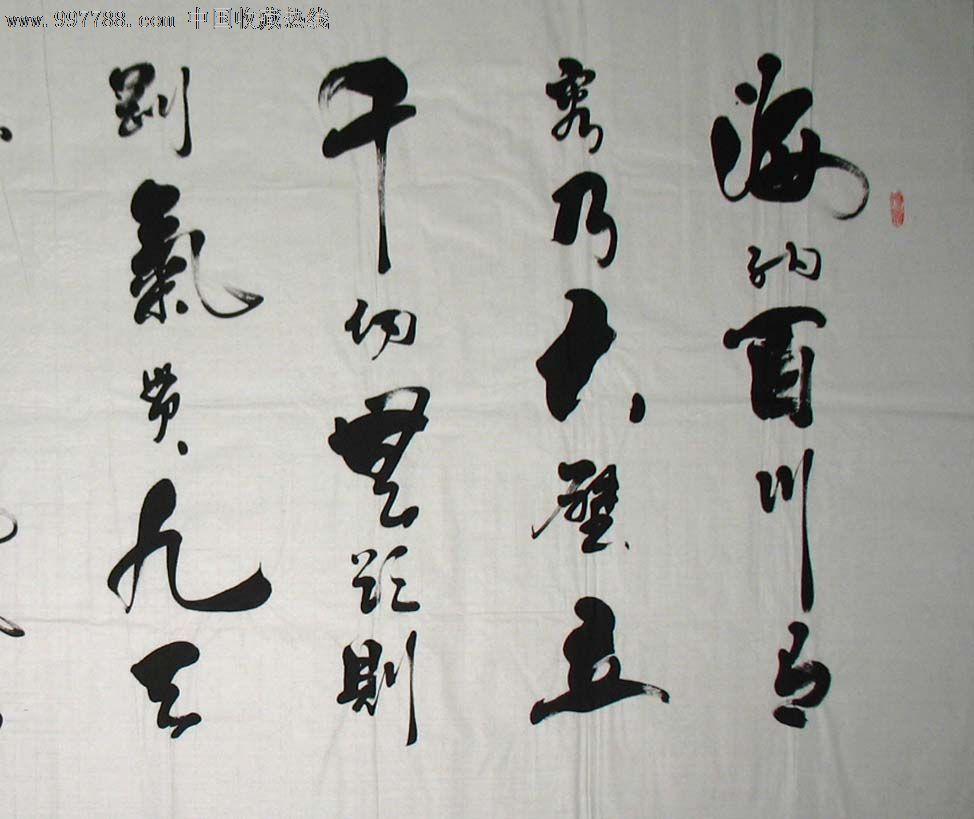 www.997788.com 中国收藏热线
海納百川有
容乃大壁立
千仞無欲則
剛氣貫九天